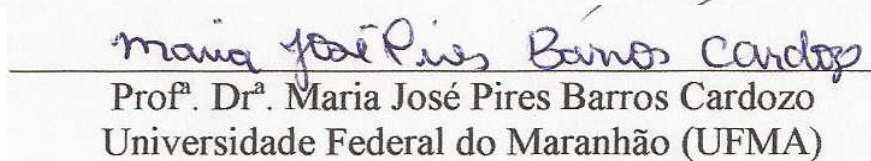 Maria José Pires Barros Cardozo
Profª. Drª. Maria José Pires Barros Cardozo
Universidade Federal do Maranhão (UFMA)